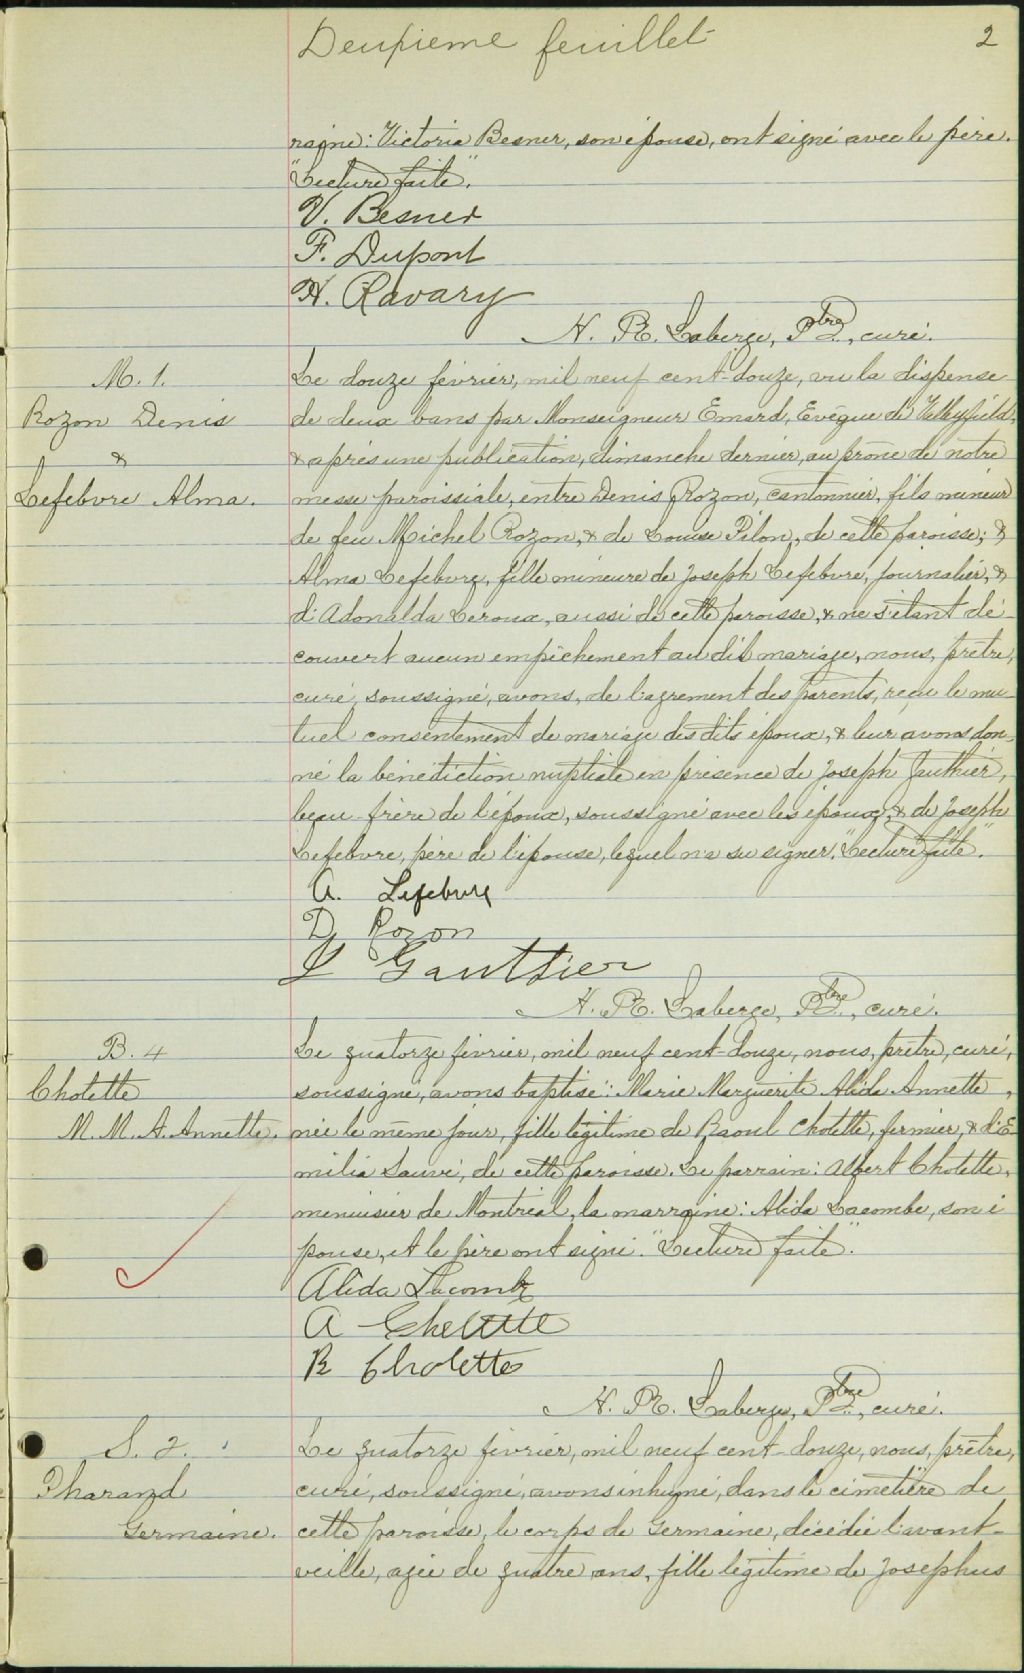 Deuxieme feuillet
2
raine: Victoria Besner, son épouse, ont signé avec le père.
"Lecture faite."
V. Besner
F. Dupont
H. Ravary
N. R. Laberge, Ptre, curé.
M. 1.
Rozon Denis
&
Lefebvre Alma.
Le douze février, mil neuf cent-douze, vu la dispense
de deux bans par Monseigneur Emard, Evêque de Valleyfield,
& après une publication, dimanche dernier, au prône de notre
messe paroissiale, entre Denis Rozon, cantonnier, fils mineur
de feu Michel Rozon, & de Louise Pilon, de cette paroisse; &
Alma Lefebvre, fille mineure de Joseph Lefebvre, journalier, &
d'Adonalda Leroux, aussi de cette paroisse, & ne s'étant dé-
couvert aucun empêchement au dit mariage, nous, prêtre,
curé, soussigné, avons, de l'agrément des parents, reçu le mu-
tuel consentement de mariage des dits époux, & leur avons don-
né la bénédiction nuptiale en présence de Joseph Gauthier,
beau-frère de l'époux, soussigné avec les époux, & de Joseph
Lefebvre, père de l'épouse, lequel n'a su signer. "Lecture faite."
A. Lefebvre
D Rozon
J Gauthier
N. R. Laberge, Ptre, curé.
B. 4
Cholette
M. M. A. Annette.
Le quatorze février, mil neuf cent-douze, nous, prêtre, curé,
soussigné, avons baptisé: Marie Marguerite Alida Annette,
née le même jour, fille légitime de Raoul Cholette, fermier, & d'E-
milia Sauvé, de cette paroisse. Le parrain: Albert Cholette,
menuisier de Montréal, la marraine: Alida Lacombe, son é
pouse, et le père ont signé. "Lecture faite".
Alida Lacombe
A Cholette
R Cholette
N. R. Laberge, Ptre, curé.
S. 2.
Pharand
Germaine.
Le quatorze février, mil neuf cent-douze, nous, prêtre,
curé, soussigné, avons inhumé, dans le cimetière de
cette paroisse, le corps de Germaine, décédée l'avant-
veille, agée de quatre ans, fille légitime de Josephus